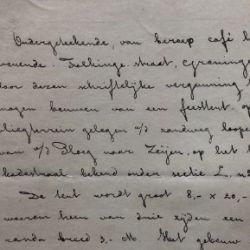 Ondergeteekende, van beroep café h
wonende Folkinge straat, Groninge
door dezen schriftelijke vergunning
mogen bouwen van een feesttent op
vliegterrein gelegen a/d zandweg loop
van a/d Ploeg naar Zeijen, op het
kadastraal bekend onder sectie L, n
De tent wordt groot 8,- x 20,-
waarom heen van drie zijden een
randa breed 3,- M. Het gebouw